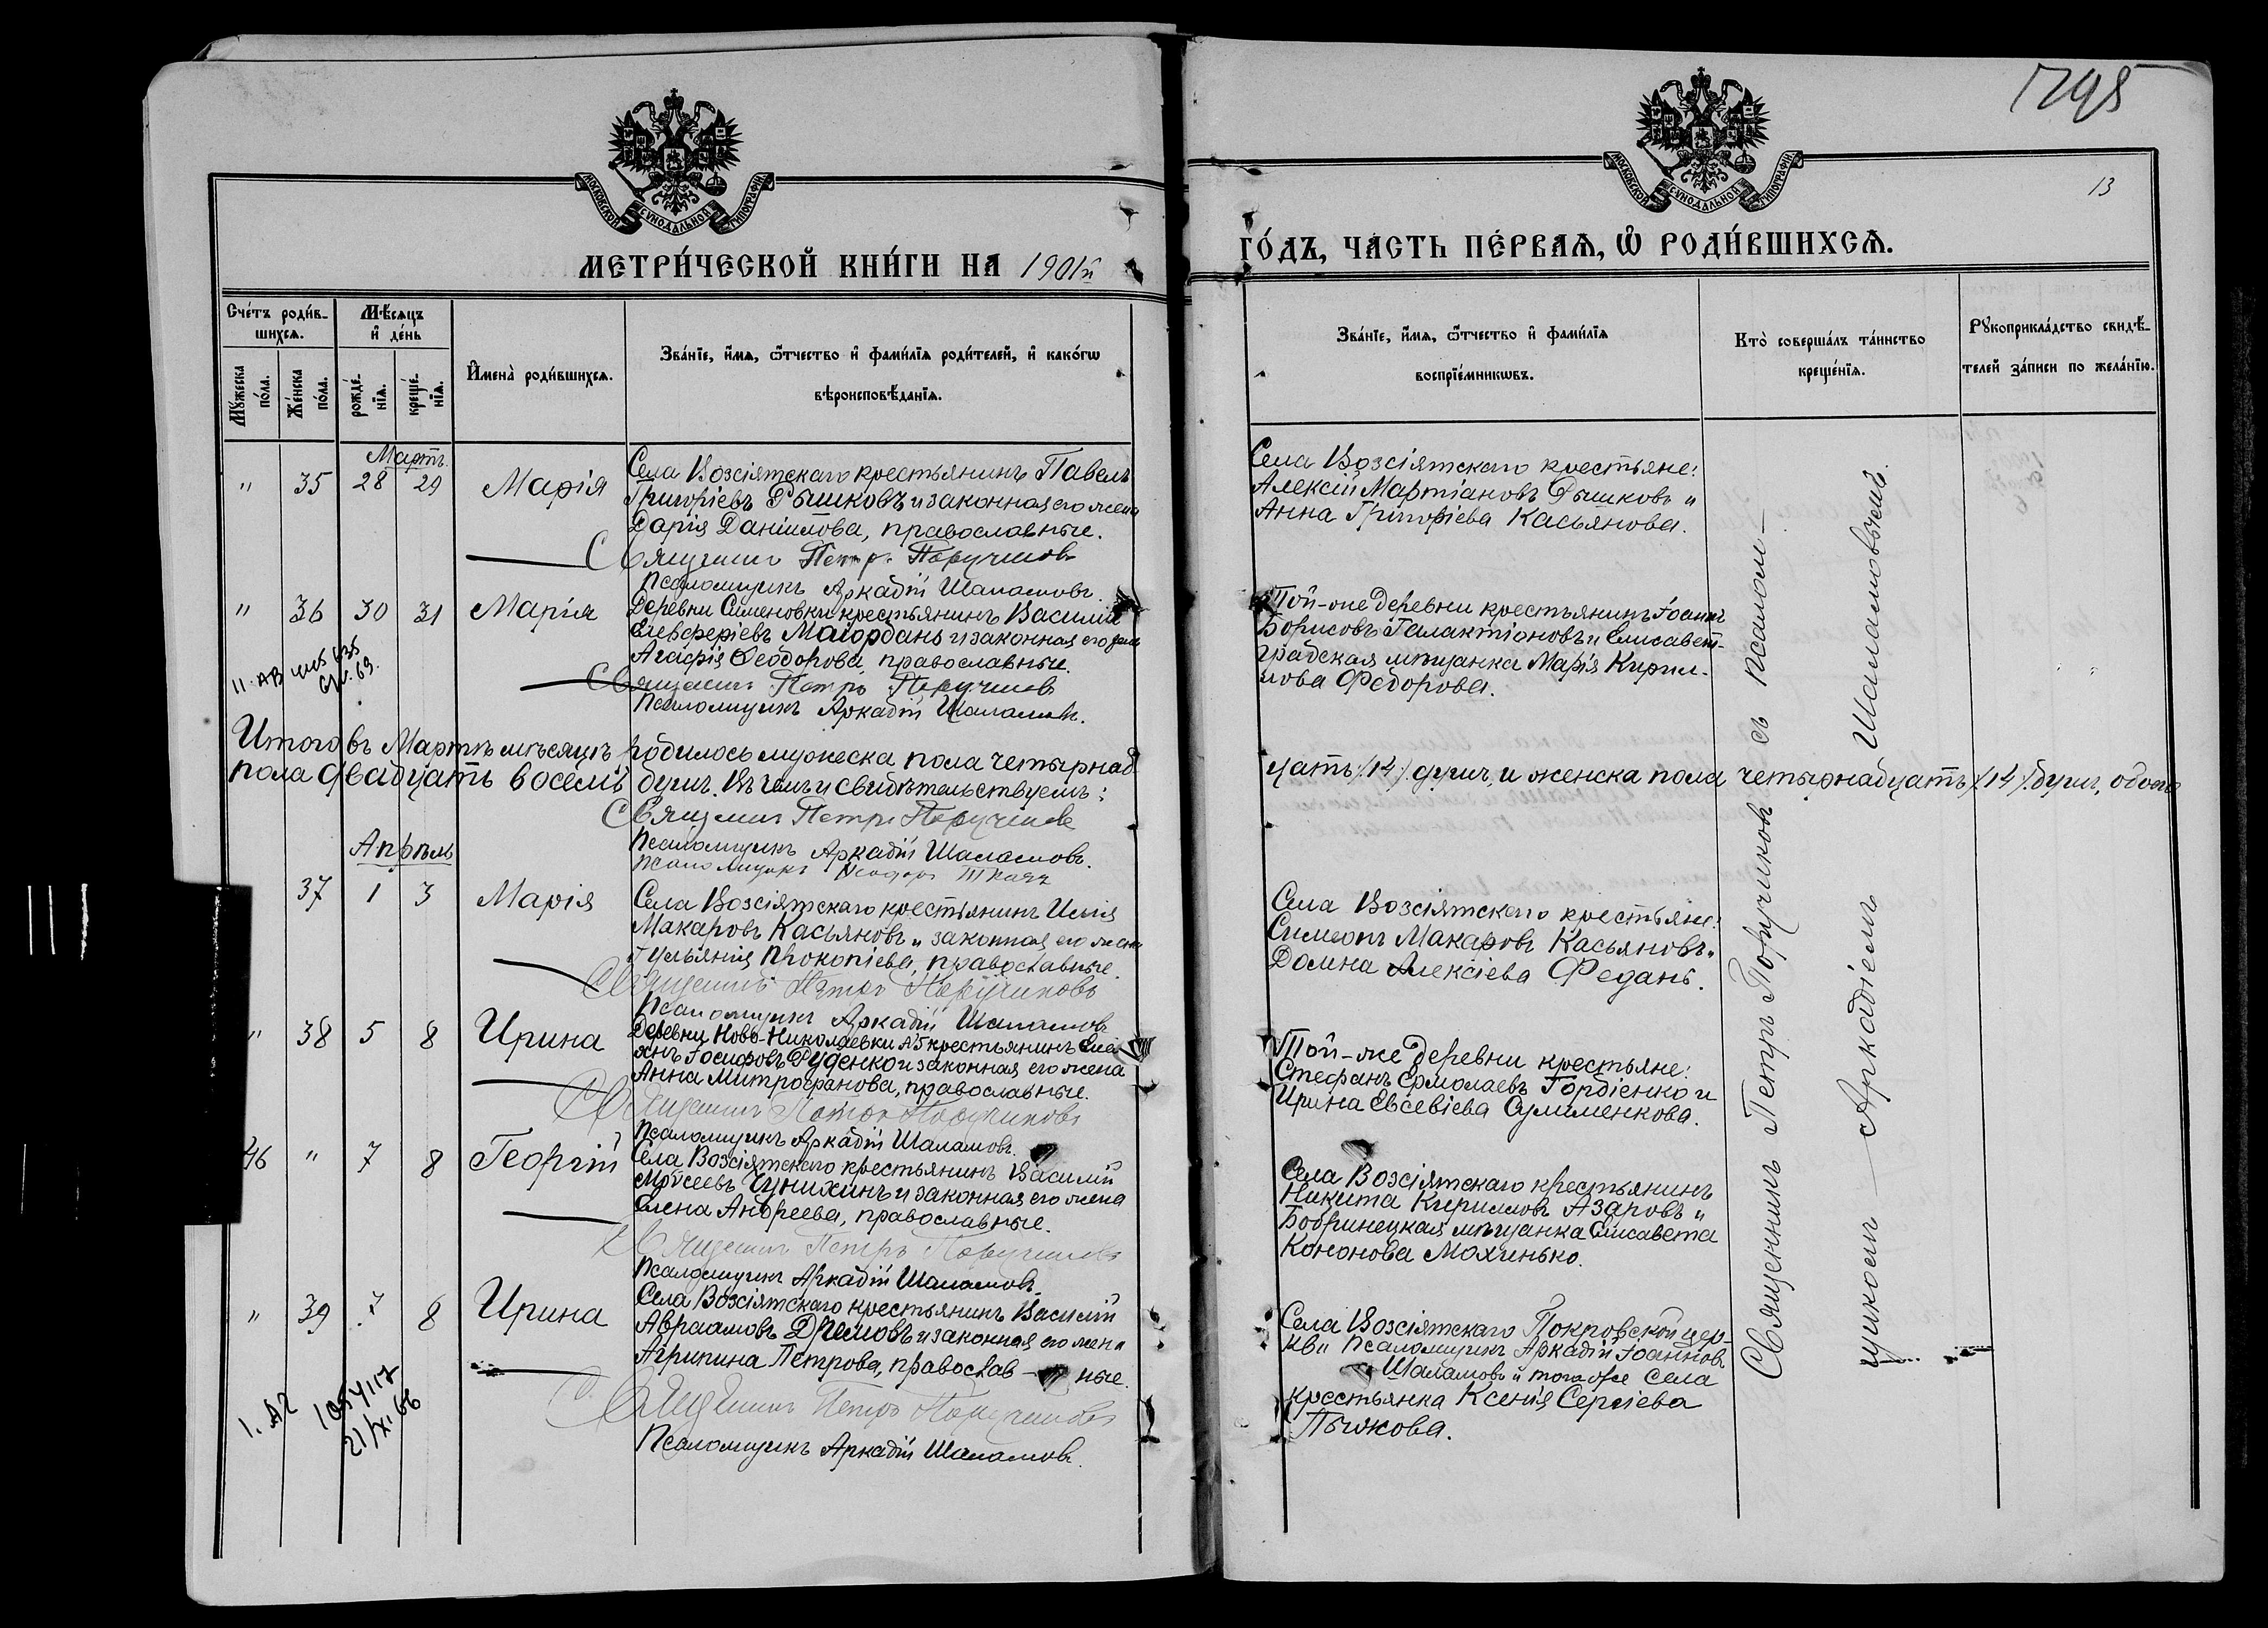 1795
13
МОСКОВСКОЙ СѴНОДАЛЬНОЙ ТИПОГРАФІИ
МОСКОВСКОЙ СѴНОДАЛЬНОЙ ТИПОГРАФІИ
МЕТРИ́ЧЕСКОЙ КНИ́ГИ НА 1901й
ГО́ДЪ, ЧА́СТЬ ПЕ́РВАѦ, Ѡ҆ РОДИ́ВШИХСѦ.
Сче́тъ роди́в-
шихсѧ.
Мѣ́сѧцъ
и҆ де́нь
Мꙋ́жеска
по́ла.
Же́нска
по́ла.
рожде́-
нїѧ.
креще́-
нїѧ.
И҆мена̀ роди́вшихсѧ.
Зва́нїе, и҆́мѧ, ѻ҆́тчество и҆ фами́лїѧ роди́телей, и҆ како́гѡ
вѣроисповѣ́данїѧ.
Зва́нїе, и҆́мѧ, ѻ҆́тчество и҆ фами́лїѧ
воспрїе́мникѡвъ.
Кто̀ соверша́лъ та́инство
креще́нїѧ.
Рꙋкоприкла́дство свидѣ́-
телей за́писи по жела́нїю.
Мартъ.
" 35 28 29 Марія
Села Возсіятскаго крестьянинъ Павелъ
Григоріевъ Рышковъ и законная его жена
Дарія Даніилова, православные.
Священникъ Петръ Поручиковъ
Псаломщикъ Аркадій Шаламовъ.
Села Возсіятскаго крестьяне:
Алексій Мартіановъ Рышковъ и
Анна Григоріева Касьянова.
" 36 30 31 Марія
Деревни Сименовки крестьянинъ Василій
Елевферіевъ Маіорданъ и законная его жена
Агафія Феодорова, православные.
Священникъ Петръ Поручиковъ
Псаломщикъ Аркадій Шаламовъ.
Той-же деревни крестьянинъ Іоаннъ
Борисовъ Галактіоновъ и Елисавет-
градская мѣщанка Марія Кирил-
лова Федорова.
Итого въ Мартѣ мѣсяцѣ родилось мужеска пола четырнад
цать /:14:/ душъ, и женска пола четырнадцать /:14:/ душъ, обоего
пола двадцать восемь душъ. Въ чемъ и свидѣтельствуемъ:
Священникъ Петръ Поручиковъ
Псаломщикъ Аркадій Шаламовъ.
Псаломщикъ Ѳеодоръ Ткачъ
Апрѣль
37 1 3 Марія
Села Возсіятскаго крестьянинъ Илія
Макаровъ Касьяновъ и законная его жена
Іуліанія Прокопіева, православные.
Священникъ Петръ Поручиковъ
Псаломщикъ Аркадій Шаламовъ
Села Возсіятскаго крестьяне:
Симеонъ Макаровъ Касьяновъ и
Домна Алексіева Федань.
" 38 5 8 Ирина
Деревни Ново-Николаевки А5 крестьянинъ
Іосифовъ Руденко и законная его жена
Анна Митрофанова, православные.
Священникъ Петръ Поручиковъ
Псаломщикъ Аркадій Шаламовъ.
Той-же деревни крестьяне:
Стефанъ Ермолаевъ Гордіенко и
Ирина Евсевіева Сулименкова.
46 " 7 8 Георгій
Села Возсіятскаго крестьянинъ Василій
Моѵсеевъ Чунихинъ и законная его жена
Елена Андреева, православные.
Священникъ Петръ Поручиковъ
Псаломщикъ Аркадій Шаламовъ.
Села Возсіятскаго крестьянинъ
Никита Кирилловъ Азаровъ и
Бобринецкая мѣщанка Елисавета
Кононова Мохинько.
" 39 7 8 Ирина
Села Возсіятскаго крестьянинъ Василій
Авраамовъ Дремовъ и законная его жена
Агрипина Петрова, православ- ные.
Священникъ Петръ Поручиковъ
Псаломщикъ Аркадій Шаламовъ.
Села Возсіятскаго Покровской цер-
кви Псаломщикъ Аркадій Іоанновъ
Шаламовъ и того же села
крестьянка Ксенія Сергіева
Пыжкова.
Священникъ Петръ Поручиковъ съ псалом-
щикомъ Аркадіемъ Шаламовымъ.
1. АГ
21/XI 66